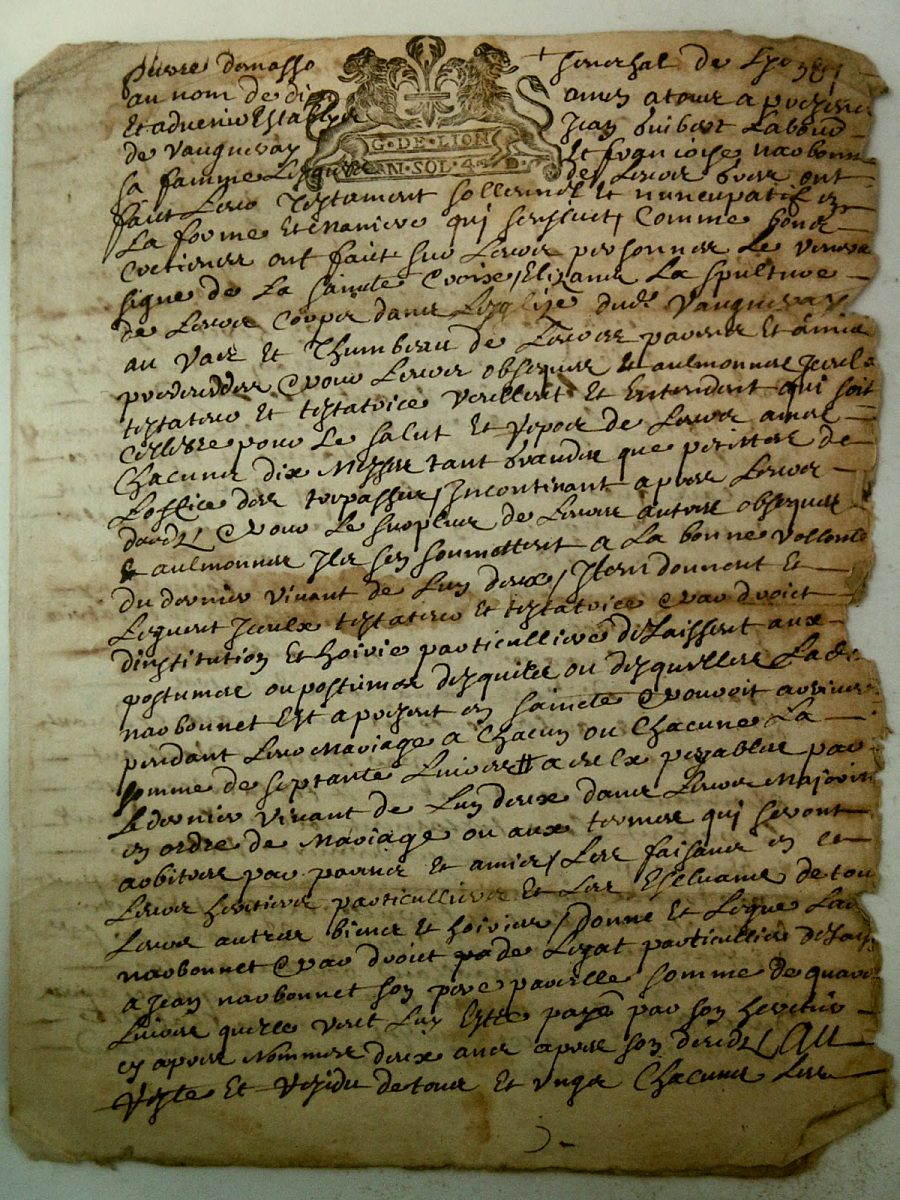 Pierre demasso senechal de Lyo
au nom de di amen a tous a presens
Et advenir Establys Jean Guibert Laboud
de Vaugneray Et françoise narbonn
G·DE·LION
sa famme Lesquels de Leurs grez ont
faict Leur Testament sollemnel et nuncupatif en
La forme Et maniere qui sensuict, Comme bons
Crestiens ont faict sur Leurs personnes Le venera
signe de La saincte Croix, Elizans La sepulture
de Leurs Corps dans Lesglize dudt Vaugneray
au Vas Et Thumbeau de Leurs parens Et amis
predecedes, pour Leurs obseques Et aulmonnes Iceulx
testateur et testatrice veullent et Entendent qui soit
Celebre pour Le salut Et repos de Leurs ames
Chacuns dix Messes tant grandes que petittes de
Loffice des trespasses, Incontinant apres Leurs
decedz, Pour Le surplus de Leurs autres obseques
Et aulmonnes Ils sen soumettent a La bonne vollonte
du dernier vivant de Luy deux, Item donnent Et
Leguent Iceulx testateur et testatrice Par droict
dinstitution Et hoirie particulliere delaissent aux
postumes ou postumes desquels ou desquelles Lade
narbonnet Est a present en saincte Pouvoit avoir
pendant Leur Mariage a Chacun ou Chacune La
somme de septante Livres a Iceulx payables par
Le dernier vivant de Luy deux dans Leurs Majorite
en ordre de Mariage ou aux termes qui seront
arbitres par parens et amis, Les faisans en ce
Leurs heritiers particulliers Et Les Excluans de tou
Leurs autres biens et hoiries, Donne Et Legue Lad
narbonnet Par droict de Legat particullier delaisse
a Jean narbonnet son pere pareille somme de quara
Livres quelle veut Luy Estre paye par son heritier
cy apres Nommes deux ans apres son decedz, Au
Reste Et Residu de tous Et ungs Chacuns Les